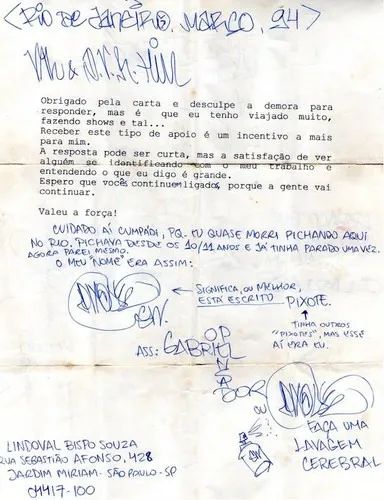 <RIO DE JANEIRO, MARÇO, 94>
Obrigado pela carta e desculpe a demora para
responder, mas é que eu tenho viajado muito,
fazendo shows e tal...
Receber este tipo de apoio é um incentivo a mais
para mim.
A resposta pode ser curta, mas a satisfação de ver
alguém se identificando com o meu trabalho e
entendendo o que eu digo é grande.
Espero que vocês continuem ligados, porque a gente vai
continuar.
Valeu a força!
CUIDADO AÍ CUMPADI, PQ. EU QUASE MORRI PICHANDO AQUI
NO RIO. PICHAVA DESDE OS 10/11 ANOS E JÁ TINHA PARADO UMA VEZ.
AGORA PAREI MESMO.
O MEU "NOME" ERA ASSIM:
← SIGNIFICA, OU MELHOR,
ESTÁ ESCRITO PIXOTE.
↑
TINHA OUTROS
"PIXOTES", MAS ESSE
AÍ ERA EU.
ASS: GABRIEL
O PENSADOR
OU
FAÇA UMA
LAVAGEM
CEREBRAL
LINDOVAL BISPO SOUZA
RUA SEBASTIÃO AFONSO, 428
JARDIM MIRIAM - SÃO PAULO - SP
04417-100